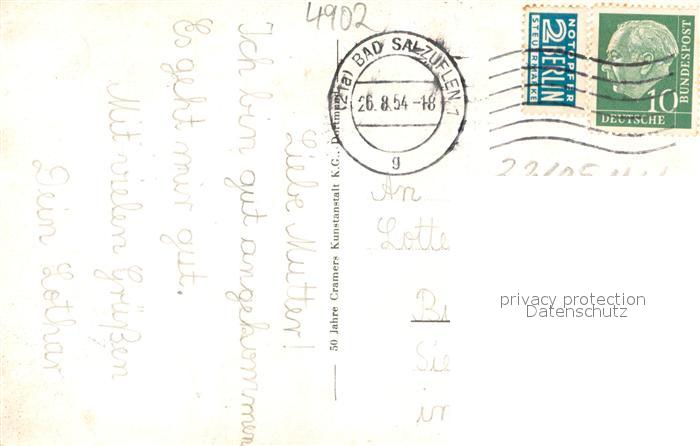 4902
(21a) BAD SALZUFLEN 1
26.8.54-18
g
NOTOPFER
2 BERLIN
STEUERMARKE
DEUTSCHE
BUNDESPOST
10
Liebe Mutter!
Ich bin gut angekommen
Es geht mir gut.
Mit vielen Grüßen
Dein Lothar
50 Jahre Cramers Kunstanstalt K.G., Dortmund
An
Lotte
Sie
privacy protection
Datenschutz